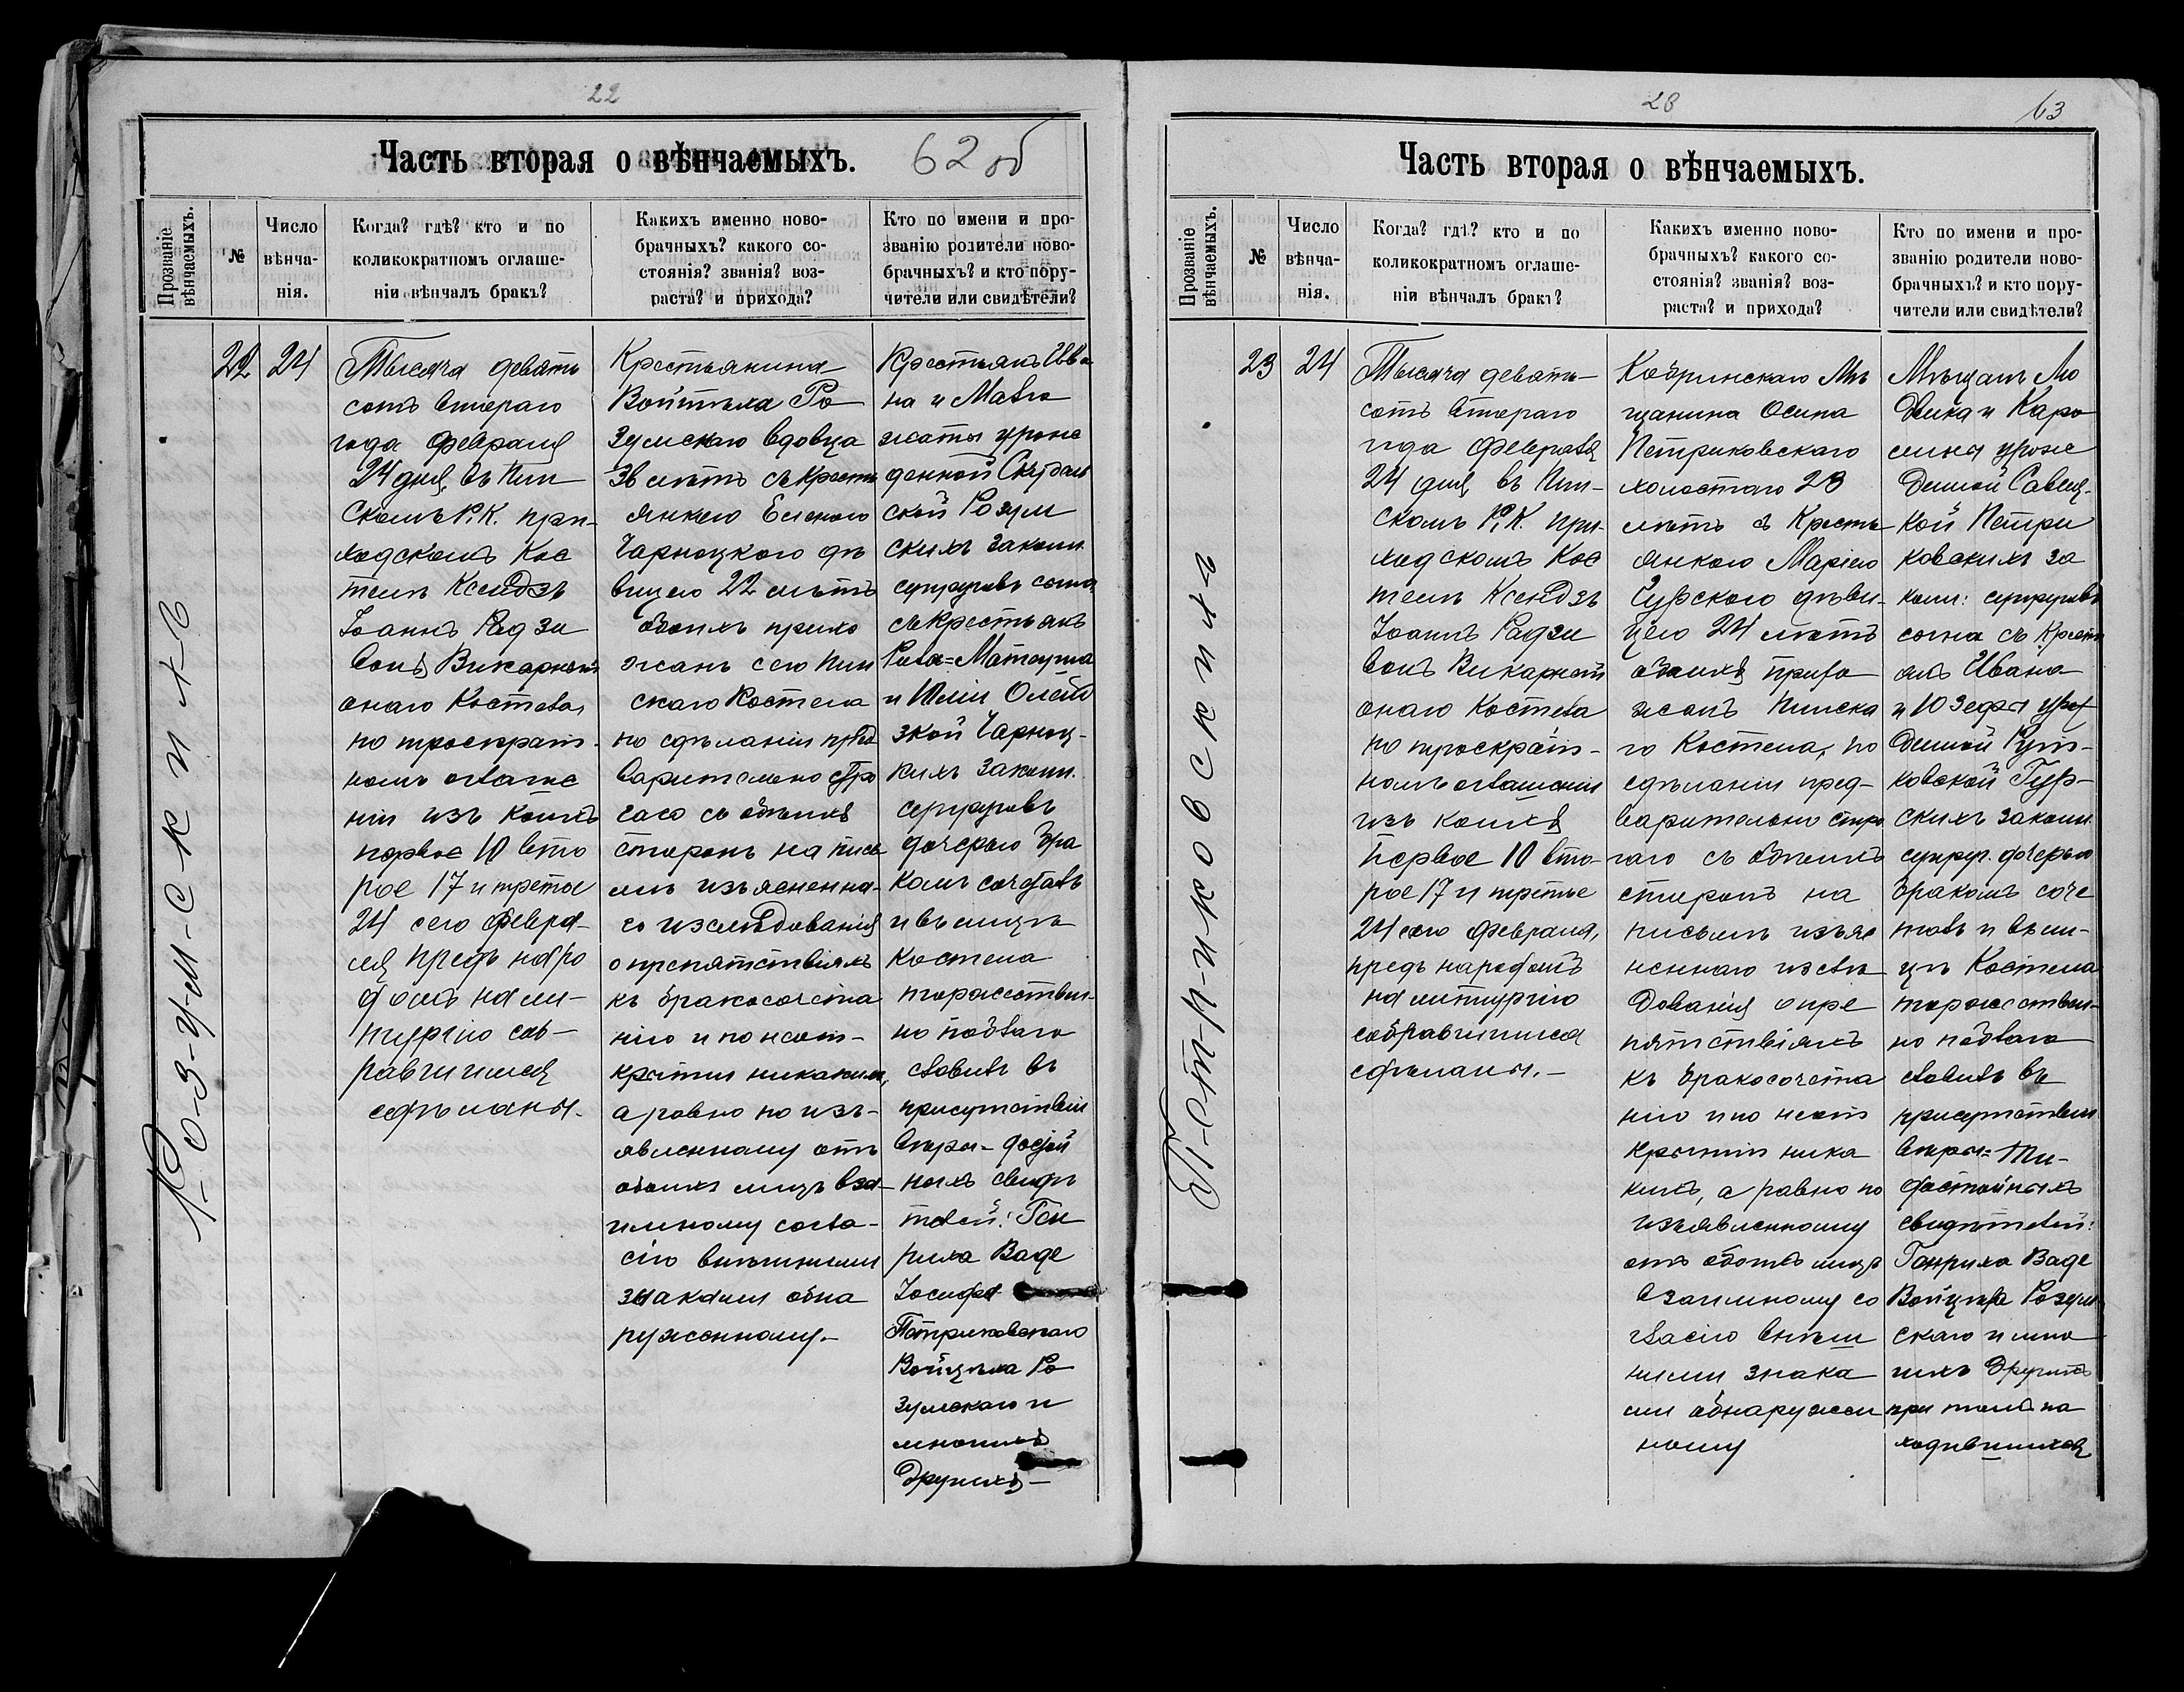 22
Часть вторая о вѣнчаемыхъ.
62 об
Прозваніе вѣнчаемыхъ.
№
Число вѣнча-
нія.
Когда? гдѣ? кто и по
коликократномъ оглаше-
ніи вѣнчалъ бракъ?
Какихъ именно ново-
брачныхъ? какого со-
стоянія? званія? воз-
раста? и прихода?
Кто по имени и про-
званію родители ново-
брачныхъ? и кто пору-
чители или свидѣтели?
Р-о-з-у-м-с-к-и-х-ъ
22
24
Тысяча девять
сотъ втораго
года февраля
24 дня, въ Пин
скомъ Р. К. при-
ходскомъ Кос
телѣ Ксендзъ
Іоаннъ Радзи
вонъ Викарный
онаго Костела
по троекрат-
номъ оглаше
ніи изъ коихъ
первое 10 вто
рое 17 и третье
24 сего февра-
ля предъ наро
домъ на ли-
тургію соб-
равшимся
сдѣланы.
Крестьянина
Войтѣха Ро
зумскаго вдовца
36 лѣтъ съ Кресть
янкою Еленою
Чарноцкою дѣ
вицею 22 лѣтъ
обоихъ прихо
жанъ сего Пин
скаго Костела
по сдѣланіи пред
варительно стро
гаго съ обѣихъ
сторонъ на пись
мѣ изъясненна-
го изслѣдованія
о препятствіяхъ
къ бракосочета
нію и по неот-
крытіи никакихъ,
а равно по изъ-
явленному отъ
обоихъ лицъ вза-
имному согла-
сію внѣшними
знаками обна
руженному.
Крестьянъ Ива
на и Мальго
жаты урож
денной Скидель
ской Розум
скихъ законн.
супруговъ сына,
съ Крестьянъ
Рила=Матеуша
и Юліи Олейд
зкой Чарноц-
кихъ законн.
супруговъ
дочерью бра
комъ сочеталъ
и въ лицѣ
Костела
торжествен-
но поблаго
словилъ въ
присутствіи
вѣры-достой
ныхъ свидѣ
телей: Ген
риха Ваде
Іосифа
Петриковскаго
Войцѣха Ро
зумскаго и
многихъ
другихъ
28
63
Часть вторая о вѣнчаемыхъ.
Прозваніе вѣнчаемыхъ.
№
Число вѣнча-
нія.
Когда? гдѣ? кто и по
коликократномъ оглаше-
ніи вѣнчалъ бракъ?
Какихъ именно ново-
брачныхъ? какого со-
стоянія? званія? воз-
раста? и прихода?
Кто по имени и про-
званію родители ново-
брачныхъ? и кто пору-
чители или свидѣтели?
П-е-т-р-и-к-о-в-с-к-и-х-ъ
23
24
Тысяча девять-
сотъ втораго
года февраля
24 дня въ Пин-
скомъ Р. К. при-
ходскомъ Кос
телѣ Ксендзъ
Іоаннъ Радзи
вонъ Викарный
онаго Костела
по троекрат-
номъ оглашеніи
изъ коихъ
первое 10 вто-
рое 17 и третье
24 сего февраля,
предъ народомъ
на литургію
собравшимся
сдѣланы.
Кобринскаго Мѣ
щанина Осипа
Петриковскаго
холостаго 28
лѣтъ съ Кресть
янкою Маріею
Гурскою дѣви-
цею 24 лѣтъ
обоихъ прихо
жанъ Пинска
го Костела, по
сдѣланіи пред-
варительно стро
гаго съ обѣихъ
сторонъ на
письмѣ изъяс
неннаго изслѣ
дованія о пре
пятствіяхъ
къ бракосочета
нію и по неот
крытіи ника
кихъ, а равно по
изъявленному
отъ обоихъ лицъ
взаимному со
гласію внѣш
ними знака
ми обнаружен
ному
Мѣщанъ Лю
двика и Каро
лины урож
денной Савиц-
кой Петри
ковскихъ за
конн: супруговъ
сына съ Крестъ
янъ Ивана
и Юзефы урож
денной Рут-
ковской Гур-
скихъ законн.
супруг. дочерью
бракомъ соче
талъ и въ ли-
цѣ Костела
торжествен-
но поблаго
словилъ въ
присутствіи
вѣры=
достойныхъ
свидѣтелей:
Генриха Ваде
Войцѣха Розум
скаго и мно
гихъ другихъ
при томъ на
ходившихся